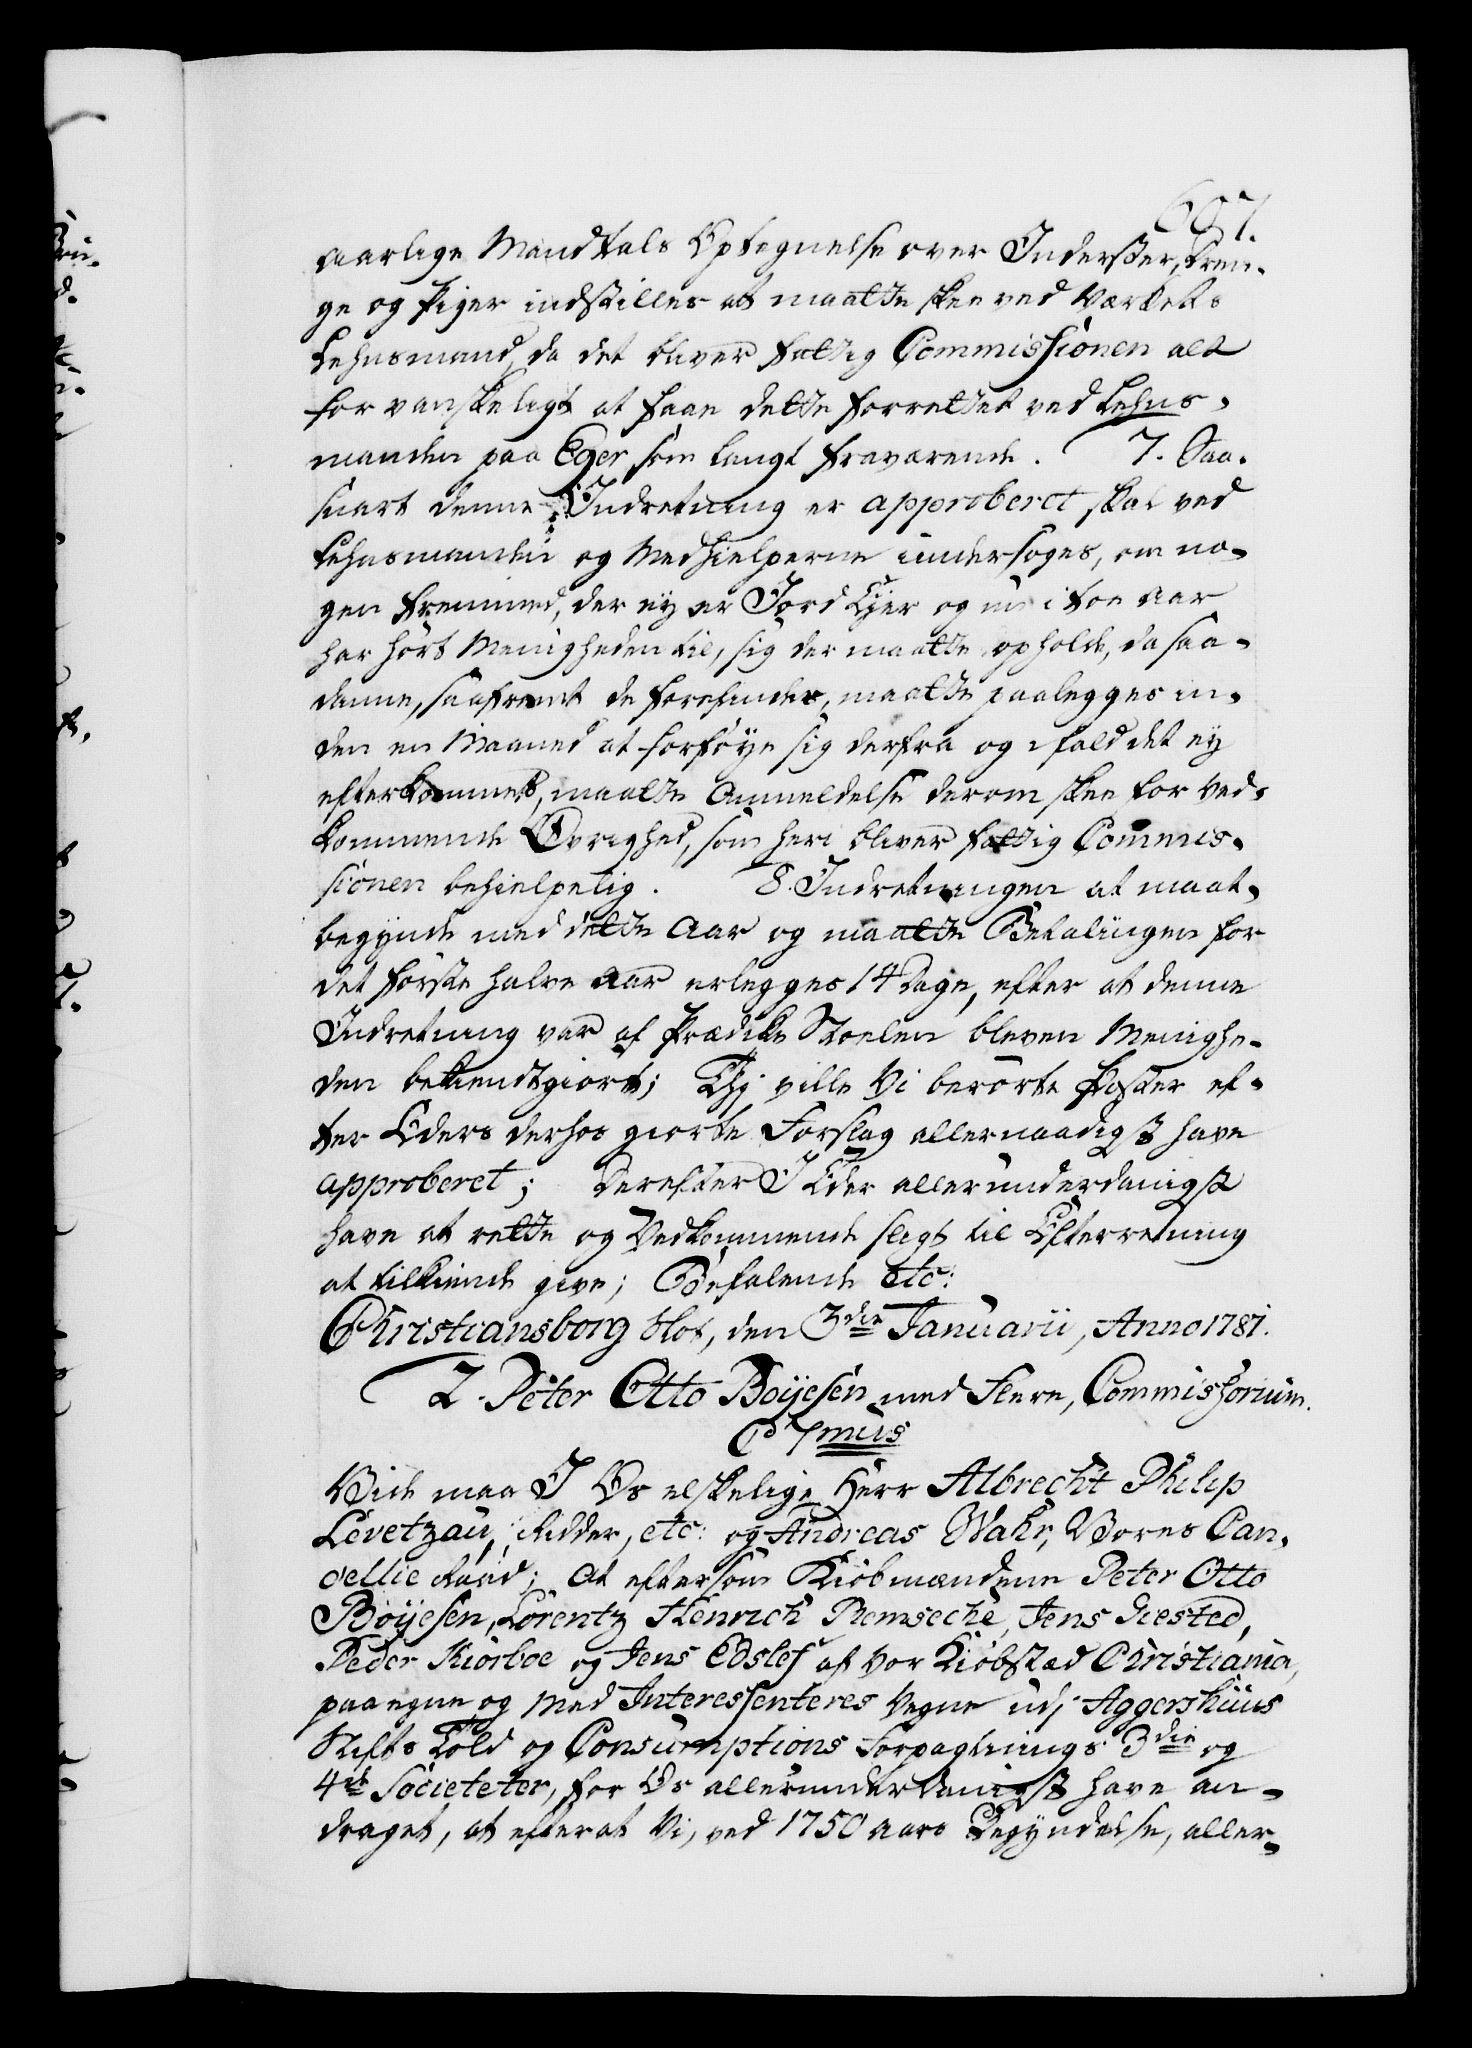 607.
aarlige Mandtals Optegnelse over Inderster, Dren-
ge og Piger indstilles at maatte skee ved Værkets
Lehnsmand, da det bliver Fattig Commissionen alt
for vanskeligt at faae dette forrettet ved Lehns-
manden paa Eger som langt fraværende. 7. Saa-
snart denne Indretning er approberet skal ved
Lehnsmanden og Medhielperne undersøges, om no-
gen fremmed, der ey er Jord Ejer og en i toe Aar
har hørt Menigheden til, sig der maatte opholde, da saa-
danne, saafremt de forefindes, maatte paalegges in-
den en Maaned at forføye sig derfra og i fald det ey
efterkommes, maatte Anmeldelse derom skee for Ved-
kommende Øvrighed, som heri bliver Fattig Commis-
sionen behielpelig. 8. Indretningen at maat-
begynde med dette Aar og maatte Betalingen for
det første halve Aar erlegges 14 Dage, efter at denne
Indretning var af Prædike Stoelen bleven Menighe-
den bekiendtgiort; Thj ville Vi berørte Poster ef-
ter Eders derhos giorte Forslag allernaadigst have
approberet; derefter I Eder allerunderdanigst
have at rette og Vedkommende sligt til Efterretning
at tilkiende give; Befalende etc:
Christiansborg Slot, den 3die Januarii, Anno 1781.
2. Peter Otto Boyesen med Flere, Commissorium.
C 7mus
Viide maa I Os elskelige Herr Albrecht Philip
Levetzau, Ridder, etc: og Andreas Wahr, Vores Can-
cellie Raad; At eftersom Kiøbmændene Peter Otto
Boyesen, Lorentz Henrich Remseche, Jens Siested,
Peder Kiørboe og Jens Edslef af Vor Kiøbstad Christiania,
paa egne og Med Interessenteres Vegne udj Aggershuus
Stifts Told og Consumptions Forpagtnings 3die og
4de Societeter, for Os allerunderdanigst have an-
draget, at efterat Vi, ved 1750 Aars Begyndelse, aller-